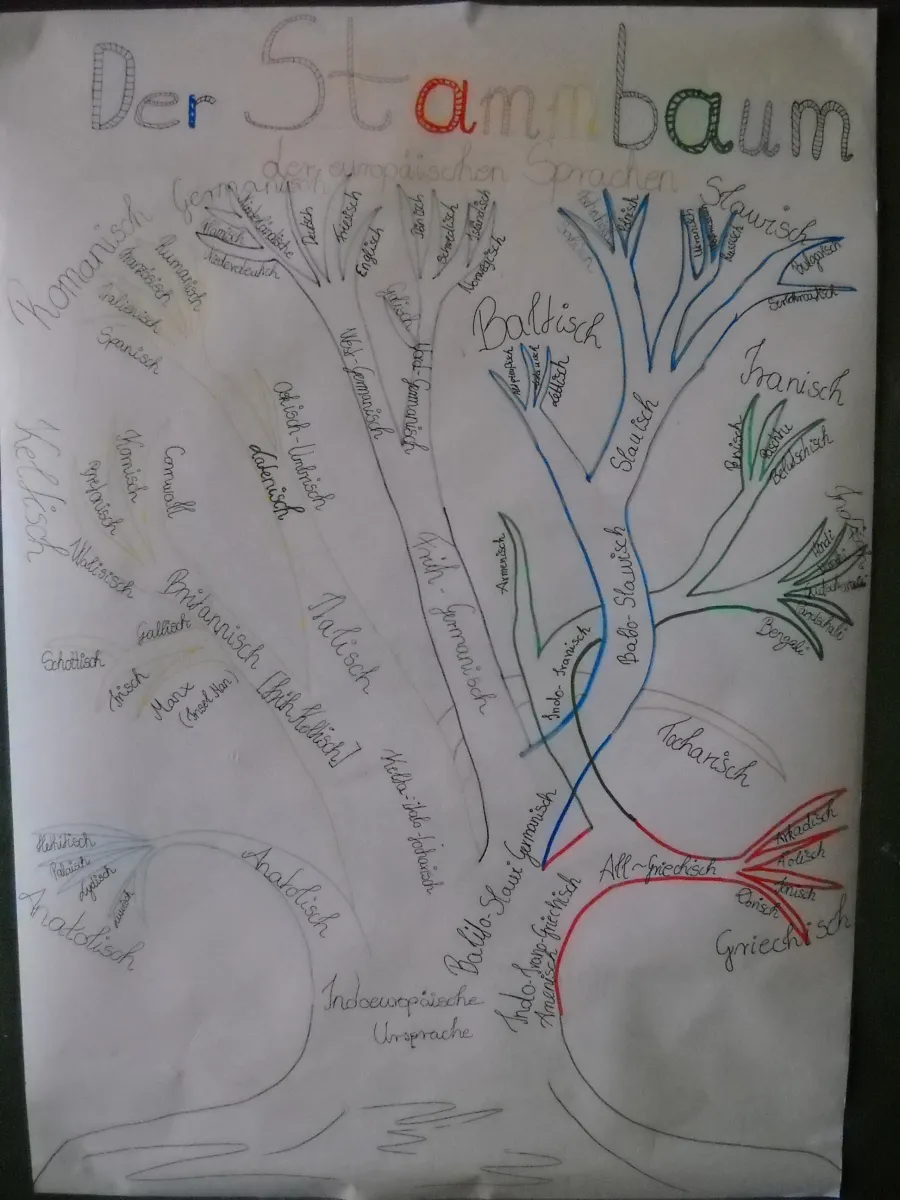 Der Stammbaum
der europäischen Sprachen
Germanisch
Niederländische
Flämisch
Niederdeutsch
Deutsch
Friesisch
Englisch
Dänisch
Schwedisch
Isländisch
Norwegisch
Gotisch
West-Germanisch
Nord-Germanisch
Früh-Germanisch
Romanisch
Rumänisch
Französisch
Italienisch
Spanisch
Oskisch-Umbrisch
Lateinisch
Italisch
Keltisch
Kornisch
Cornwall
Bretonisch
Walisisch
Britannisch
Gallisch
Schottisch
Irisch
Manx
(Insel Man)
[Früh Keltisch]
Kelto-italo-tocharisch
Slawisch
Polnisch
Ukrainisch
Russisch
Bulgarisch
Serbokroatisch
Slawisch
Baltisch
Altpreußisch
Litauisch
Lettisch
Balto-Slawisch
Iranisch
Persisch
Paschtu
Belutschisch
Hindi
Bengali
Armenisch
Indo-Iranisch
Tocharisch
Arkadisch
Äolisch
Ionisch
Dorisch
Alt-Griechisch
Griechisch
Hethitisch
Palaisch
Lydisch
Luwisch
Anatolisch
Anatolisch
Balto-Slawi Germanisch
Indo-Irano-Griechisch
Amenisch
Indoeuropäische
Ursprache